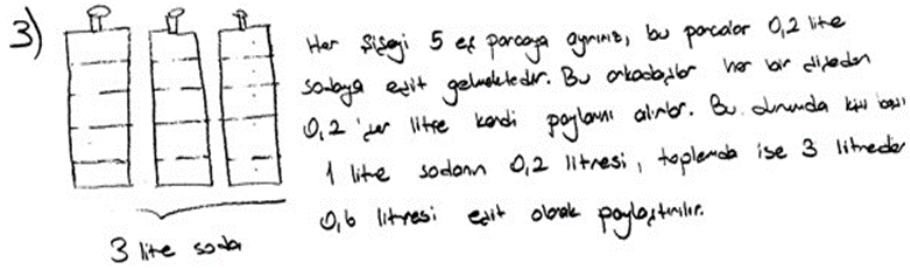 3)
Her şişeyi 5 eş parçaya ayırırız, bu parçalar 0,2 litre
sodaya eşit gelmektedir. Bu arkadaşlar her bir şişeden
0,2 'şer litre kendi paylarını alırlar. Bu durumda kişi başı
1 litre sodanın 0,2 litresi, toplamda ise 3 litreden
0,6 litresi eşit olarak paylaştırılır.
3 litre soda